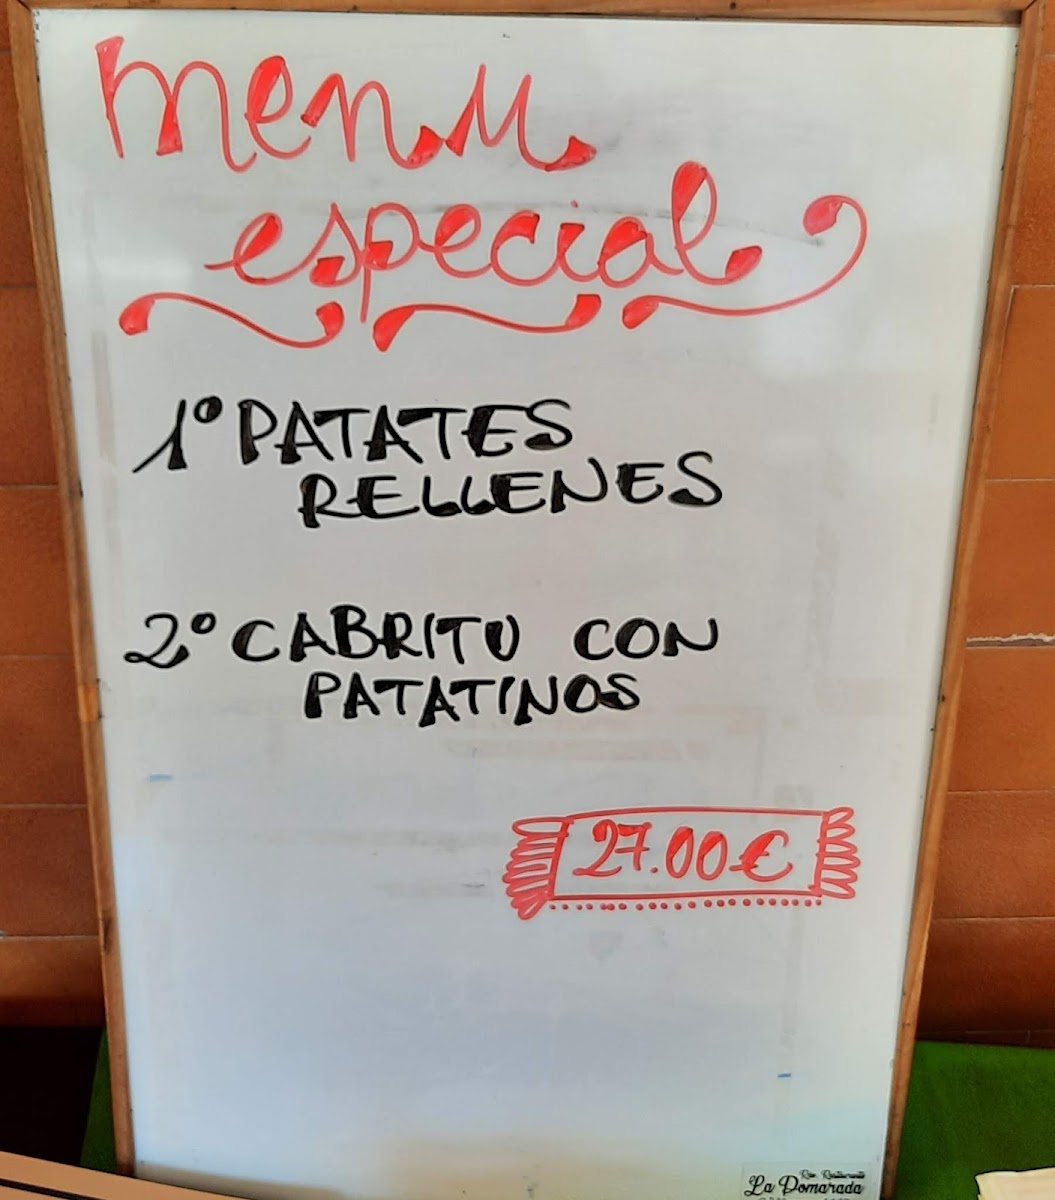 menu
especial
1º PATATES
RELLENES
2º CABRITU CON
PATATINOS
27.00€
La Pomarada